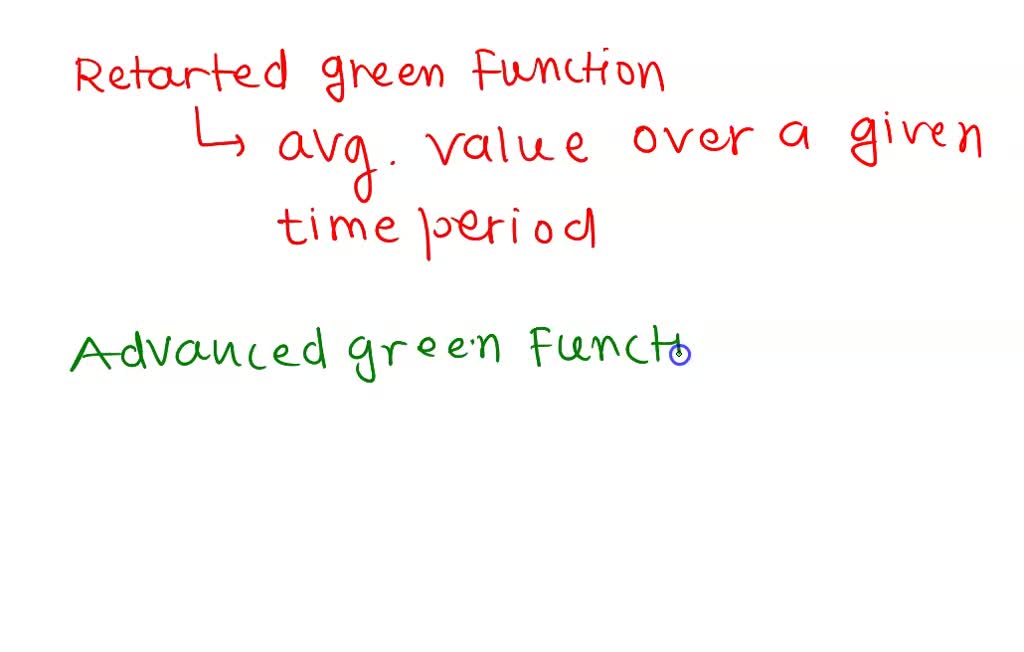 Retarted green Function
↳ avg. value over a given
time period
Advanced green Functi